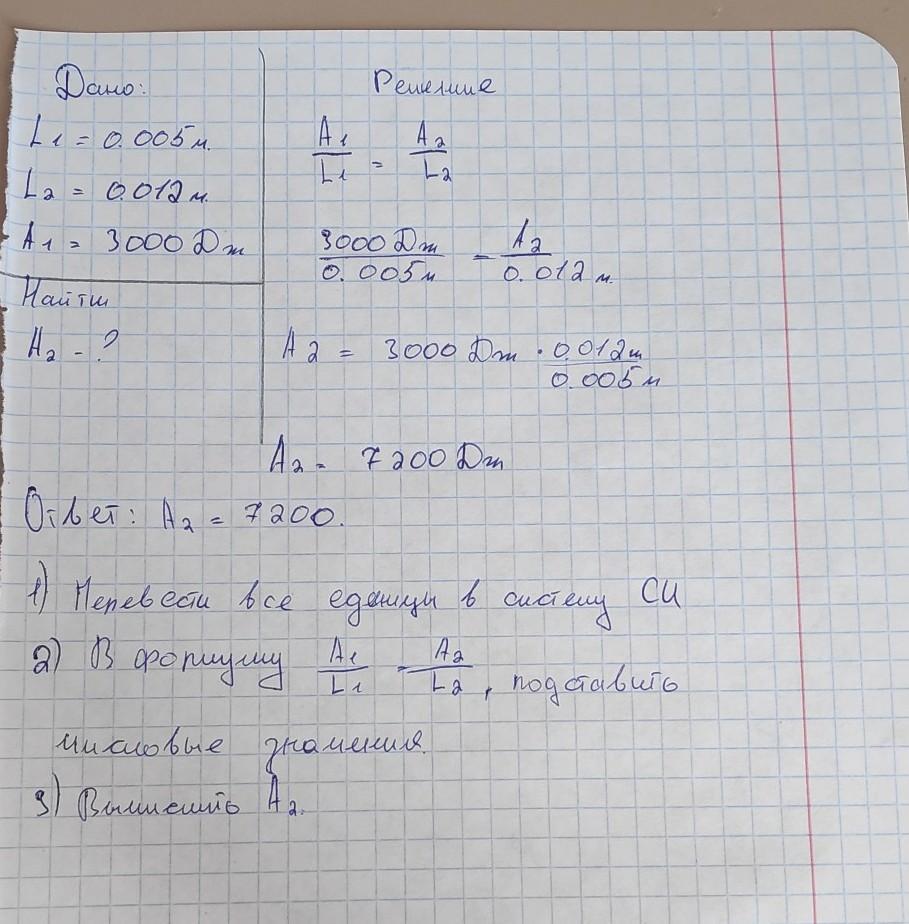 Дано:
L1 = 0.005 м.
L2 = 0.012 м.
A1 = 3000 Дж
Найти
A2 - ?
Решение
A1/L1 = A2/L2
3000 Дж/0.005 м = A2/0.012 м.
A2 = 3000 Дж · 0.012 м/0.005 м
A2 = 7200 Дж
Ответ: A2 = 7200.
1) Перевести все единицы в систему СИ
2) В формулу A1/L1 = A2/L2, подставить
числовые значения.
3) Вычислить A2.